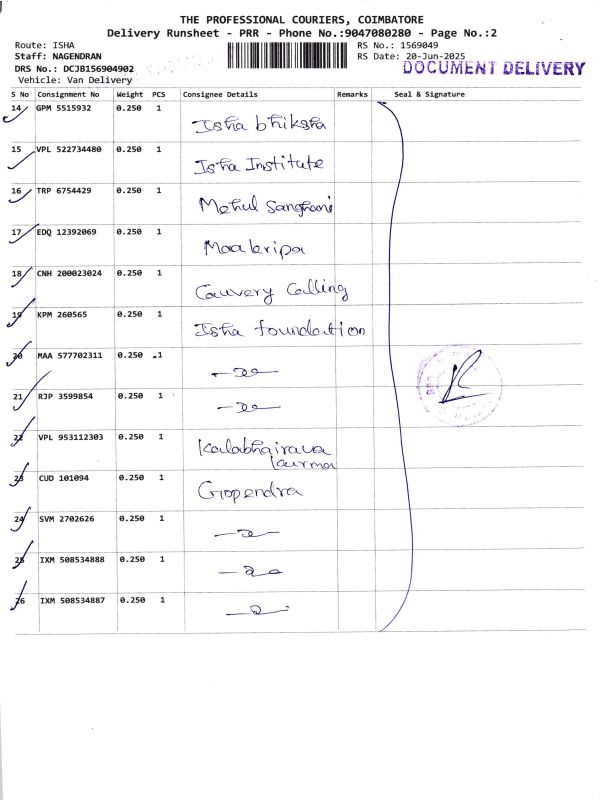 THE PROFESSIONAL COURIERS, COIMBATORE
Delivery Runsheet - PRR - Phone No.:9047080280 - Page No.:2
Route: ISHA
Staff: NAGENDRAN
DRS No.: DCJB156904902
Vehicle: Van Delivery
RS No.: 1569049
RS Date: 20-Jun-2025
DOCUMENT DELIVERY
S No Consignment No Weight PCS Consignee Details Remarks Seal & Signature
14 GPM 5515932 0.250 1 Isha bhiksha
15 VPL 522734480 0.250 1 Isha Institute
16 TRP 6754429 0.250 1 Mehul Sanghani
17 EDQ 12392069 0.250 1 Maakripa
18 CNH 200023024 0.250 1 Cauvery Calling
19 KPM 260565 0.250 1 Isha foundation
20 MAA 577702311 0.250 1
21 RJP 3599854 0.250 1
22 VPL 953112303 0.250 1 Kalabhairava
karma
23 CUD 101094 0.250 1 Gopendra
24 SVM 2702626 0.250 1
25 IXM 508534888 0.250 1
26 IXM 508534887 0.250 1